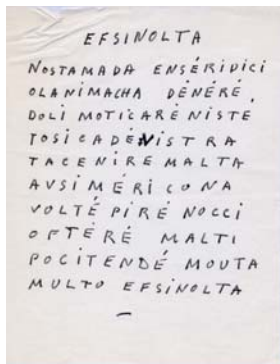 EFSINOLTA
NOSTAMADA ENSÉRIDICI
OLANIMACHA DÉNÉRÉ,
DOLI MOTICARÉ NISTE
TOSICADÉNISTRA
TACENIRE MALTA
AVSIMÉRICONA
VOLTÉ PIRÉ NOCCI
OPTÉRÉ MALTI
POCITENDÉ MOUTA
MULTO EFSINOLTA